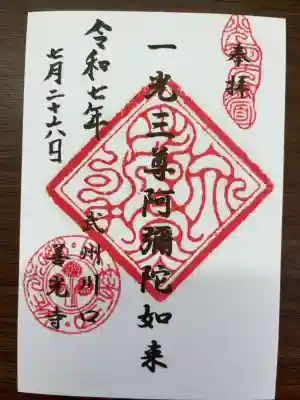 奉拝
一光三尊阿彌陀如来
武州川口
善光寺
令和七年
七月二十六日